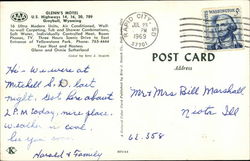 GLENN'S MOTEL
U.S. Highways 14, 16, 20, 789
Greybull, Wyoming
16 Ultra Modern Units, Air Conditioned, Wall-
to-wall Carpeting, Tub and Shower Combinations,
Soft Water, Individually Controlled Heat, Room
Phones, TV. Three Hours Scenic Drive to East
Entrance of Yellowstone Park. Phone: 765-4444
Your Host and Hostess
Glenn and Ormie Sutherland
Hi - we were at
Mitchell S.D. last
night. Got here about
2 P.M. today, nice place.
weather is cool
Harold & Family
RAPID CITY
PM
1969
57701
WASHINGTON
POST CARD
Address
Mr & Mrs Bill Marshall
Neoga Ill
62358